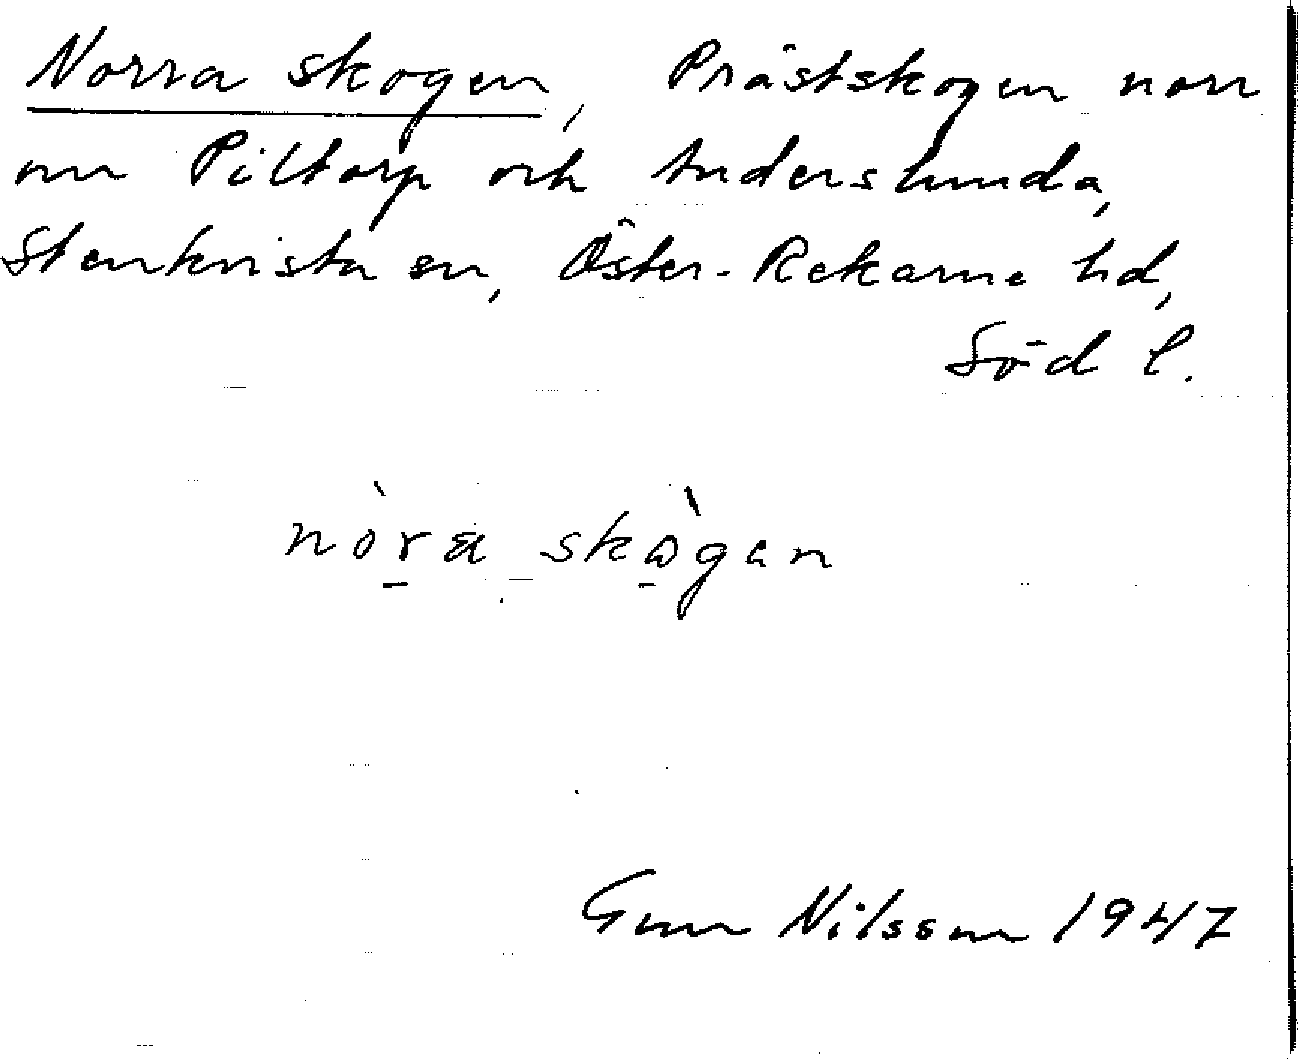 Norra skogen, Prästskogen norr
om Piltorp och Anderslunda,
Stenkvista sn, Öster-Rekarne hd,
Söd l.
nòra skògan
Gun Nilsson 1947